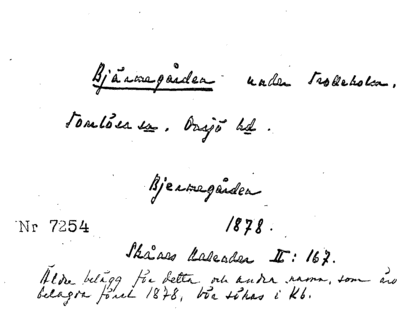 Bjärmegården under Trolleholm.
Torrlösa sn. Onsjö hd.
Bjermegården
Nr 7254 1878.
Skånes Kalender II: 167.
Äldre belägg för detta och andra namn, som äro
belagda först 1878, bör sökas i Kb.